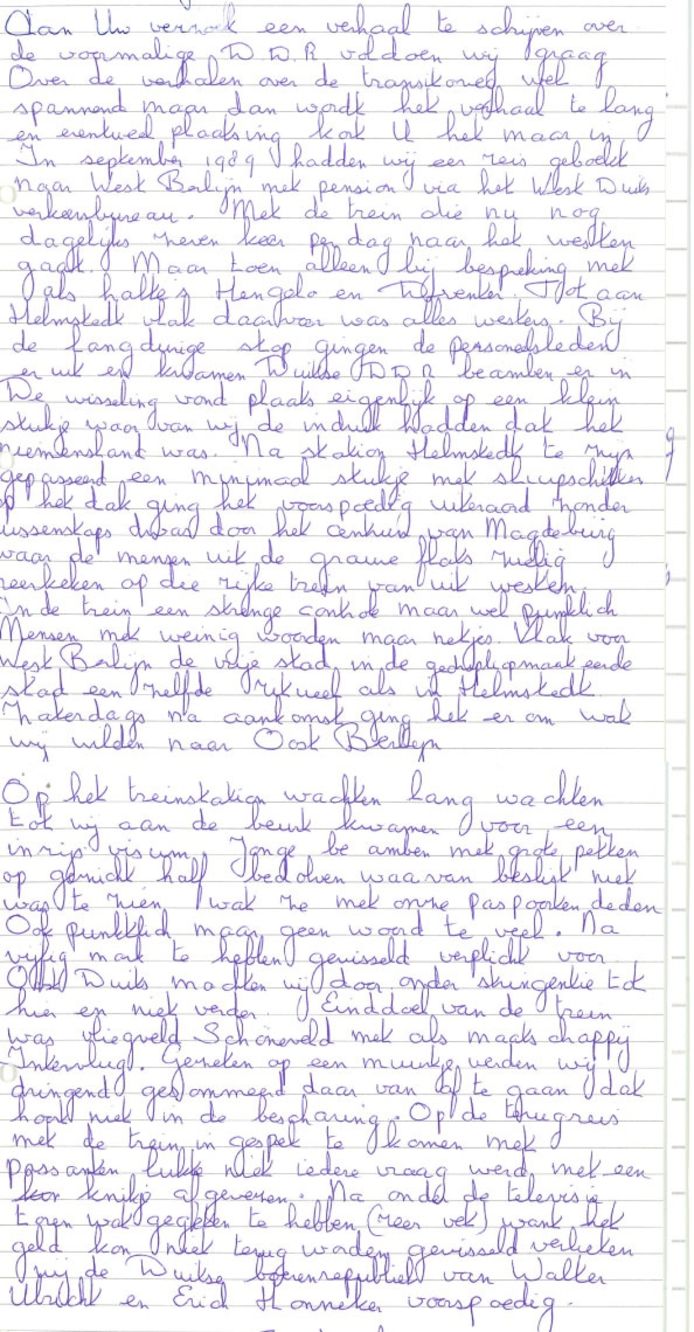 Aan Uw verzoek een verhaal te schrijven over
de voormalige D.D.R voldoen wij graag
Over de verhalen over de transitoweg wel
spannend maar dan wordt het verhaal te lang
en eventueel plaatsing kort U het maar in
In september 1989 hadden wij een reis geboekt
naar West Berlijn met pension via het West Duits
verkeersbureau. Met de trein die nu nog
dagelijks zeven keer per dag naar het westen
gaat. Maar toen alleen bij bespreking met
als halte's Hengelo en Deventer. Tot aan
Helmstedt vlak daarvoor was alles westers. Bij
de langdurige stop gingen de personeelsleden
er uit en kwamen Duitse DDR beambten er in
De wisseling vond plaats eigenlijk op een klein
stukje waar van wij de indruk hadden dat het
niemensland was. Na station Helmstedt te zijn
gepasseerd een minimaal stukje met sluipschutter
op het dak ging het voorspoedig uiteraard zonder
tussenstops dwars door het centrum van Magdeburg
waar de mensen uit de grauwe flats zielig
neerkeken op die rijke trein van uit westen.
In de trein een strenge controle maar wel punktlich
Mensen met weinig woorden maar netjes. Vlak voor
West Berlijn de vrije stad in de
stad een zelfde ritueel als in Helmstedt.
Zaterdags na aankomst ging het er om wat
wij wilden naar Oost Berlijn
Op het treinstation wachten lang wachten
tot wij aan de beurt kwamen voor een
inrijs visum. Jonge be amben met grote petten
op gezicht half bedolven waarvan beslist niet
was te zien wat ze met onze paspoorten deden
Ook punktlich maar geen woord te veel. Na
vijftig mark te hebben gewisseld verplicht voor
Oost Duits mochten wij door onder
hier en niet verder. Einddoel van de trein
was vliegveld Schöneveld met als maatschappij
Intervlug. Gezeten op een muurtje werden wij
dringend gesommeerd daar van af te gaan dat
hoort niet in de beschaving. Op de terugreis
met de trein in gesprek te komen met
passanten lukte niet iedere vraag werd met een
knikje afgewezen. Na onder de televisie
toren wat gegeten te hebben (zeer vet) want het
geld kon niet terug worden gewisseld verlieten
wij de Duitse boerenrepubliek van Walter
Ulbricht en Erich Honneker voorspoedig.